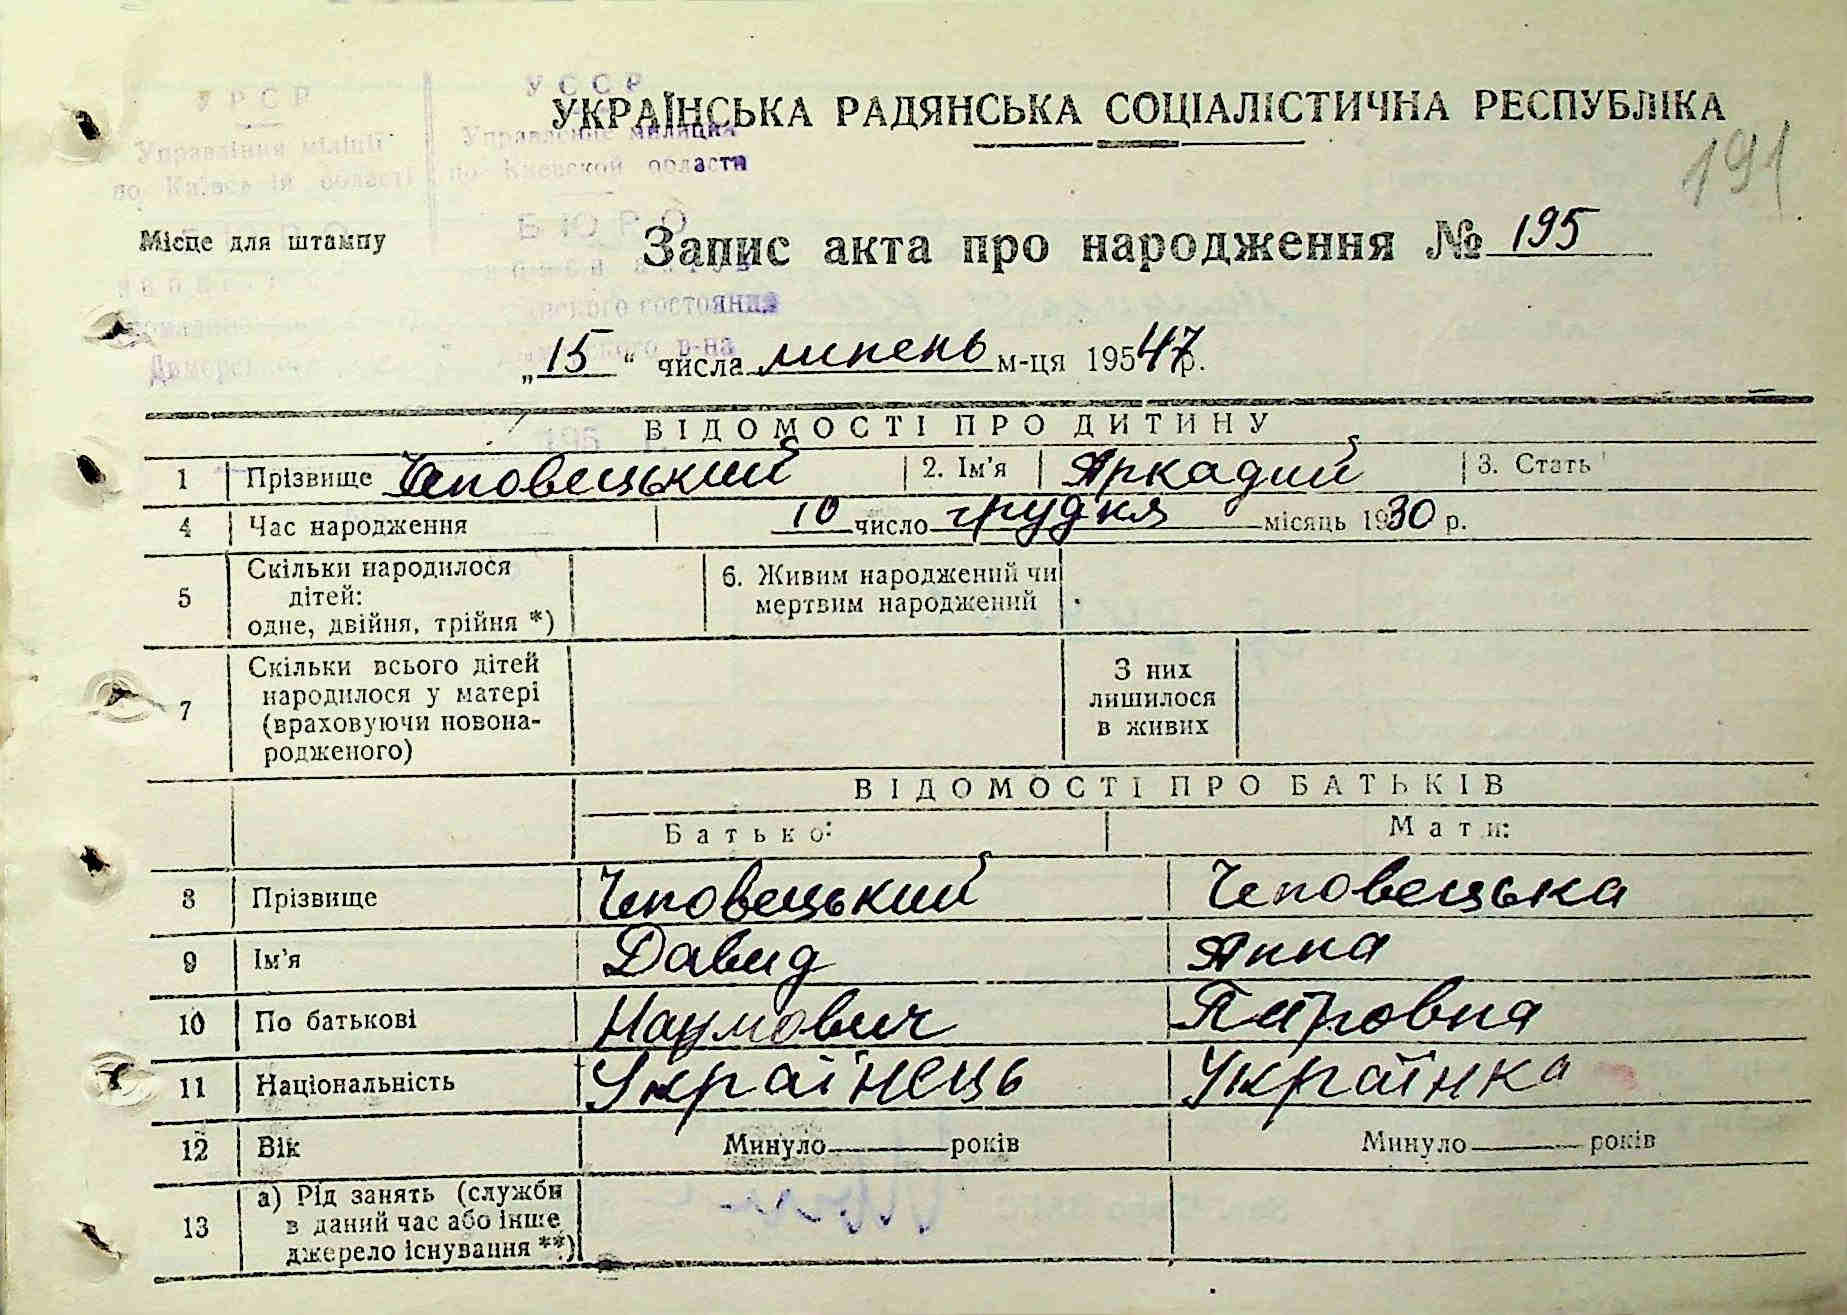 УРСР
УССР
Управління міліції
Управление милиции
по Київській області
по Киевской области
БЮРО
УКРАЇНСЬКА РАДЯНСЬКА СОЦІАЛІСТИЧНА РЕСПУБЛІКА
191
Місце для штампу
Запис акта про народження № 195
„15“ числа липень м-ця 195 47 р.
ВІДОМОСТІ ПРО ДИТИНУ
1 Прізвище Чеповецький 2. Ім'я Аркадий 3. Стать
4 Час народження 10 число грудня місяць 1930 р.
5 Скільки народилося дітей: одне, двійня, трійня *) 6. Живим народжений чи мертвим народжений
7 Скільки всього дітей народилося у матері (враховуючи новонародженого) З них лишилося в живих
ВІДОМОСТІ ПРО БАТЬКІВ
Батько: Мати:
8 Прізвище Чеповецький Чеповецька
9 Ім'я Давид Анна
10 По батькові Наумович Петровна
11 Національність Українець Українка
12 Вік Минуло років Минуло років
13 а) Рід занять (служби в даний час або інше джерело існування **)